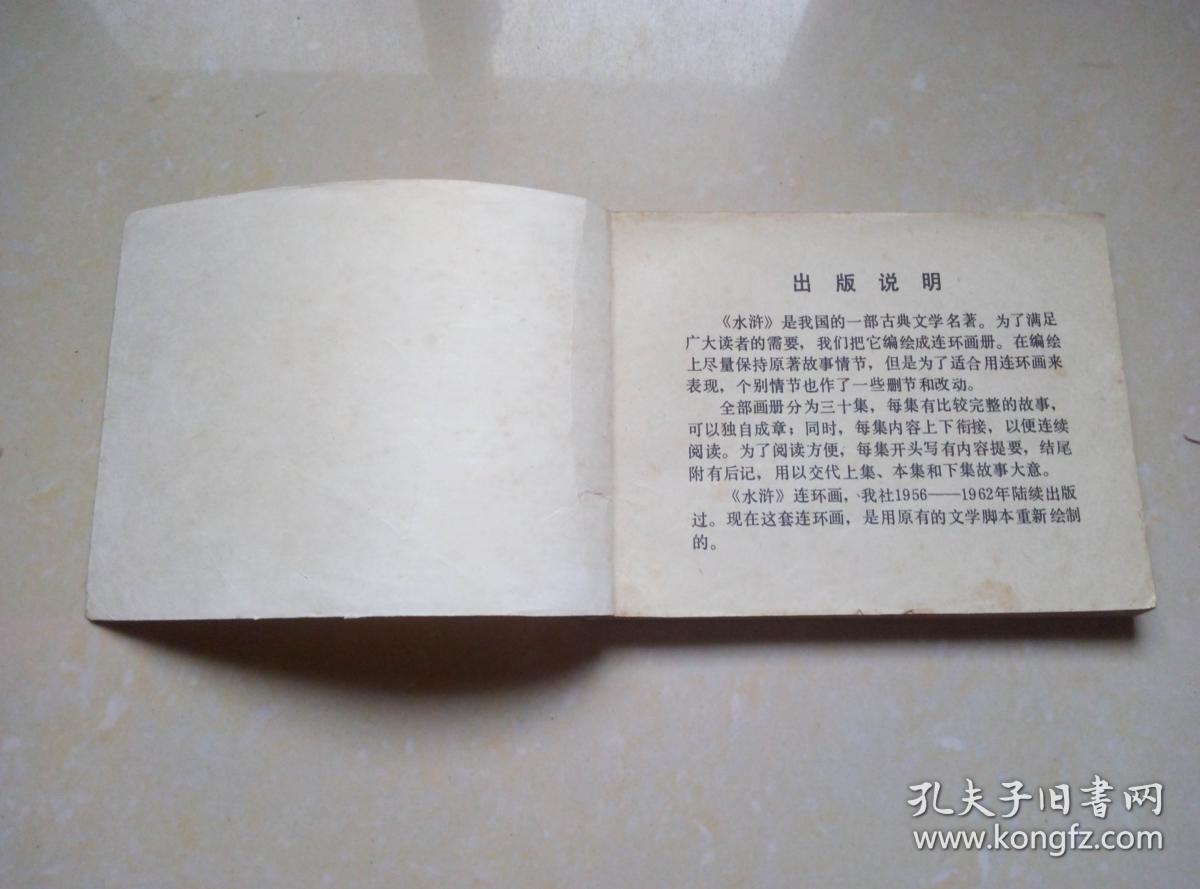 出版说明
《水浒》是我国的一部古典文学名著。为了满足
广大读者的需要，我们把它编绘成连环画册。在编绘
上尽量保持原著故事情节，但是为了适合用连环画来
表现，个别情节也作了一些删节和改动。
全部画册分为三十集，每集有比较完整的故事，
可以独自成章；同时，每集内容上下衔接，以便连续
阅读。为了阅读方便，每集开头写有内容提要，结尾
附有后记，用以交代上集、本集和下集故事大意。
《水浒》连环画，我社1956——1962年陆续出版
过。现在这套连环画，是用原有的文学脚本重新绘制
的。
孔夫子旧書网
www.kongfz.com